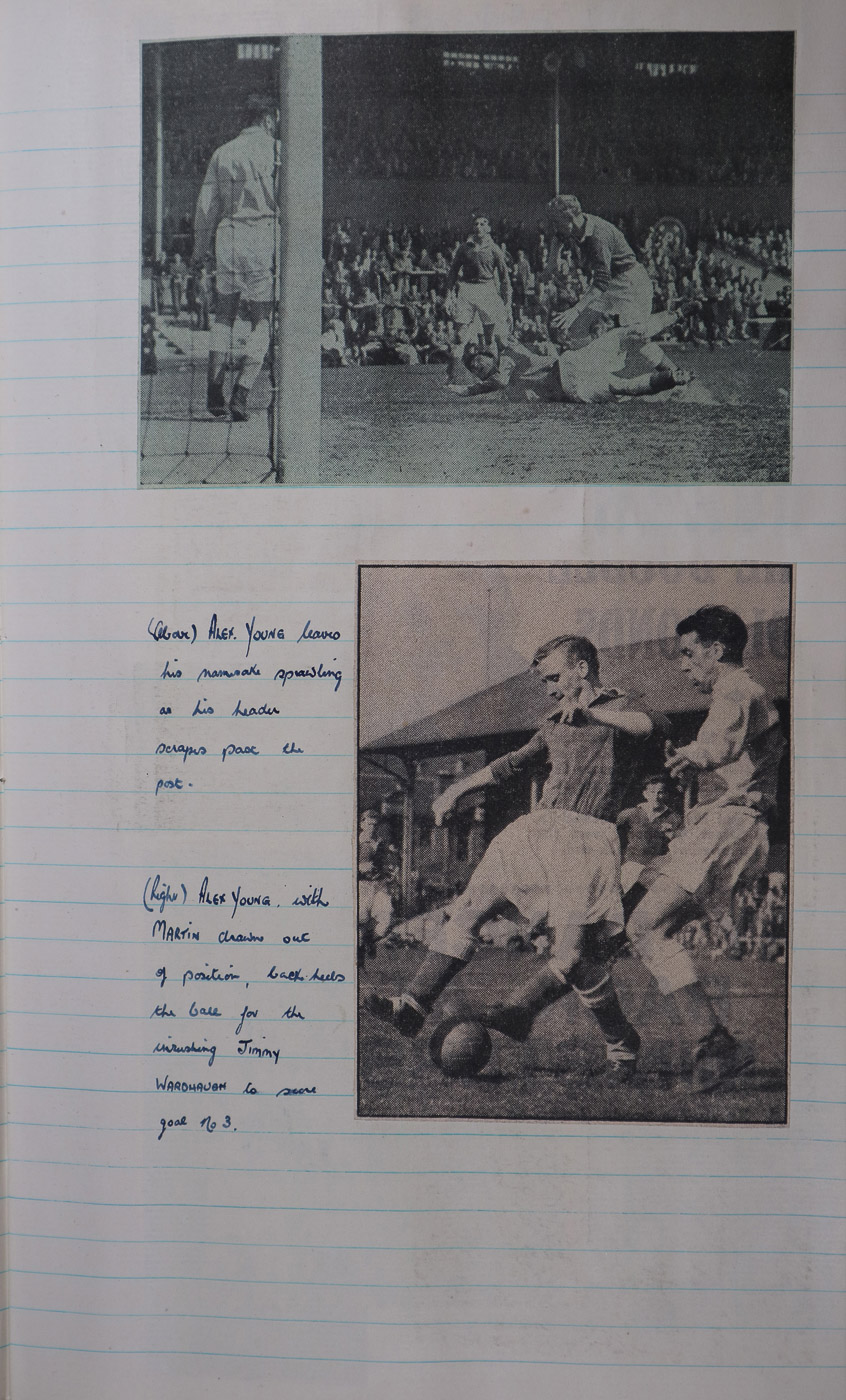 (Above) ALEX. YOUNG leaves
his namesake sprawling
as his header
scrapes past the
post.
(Right) ALEX YOUNG. with
MARTIN drawn out
of position, back-heels
the ball for the
inrushing JIMMY
WARDHAUGH to score
goal No 3.